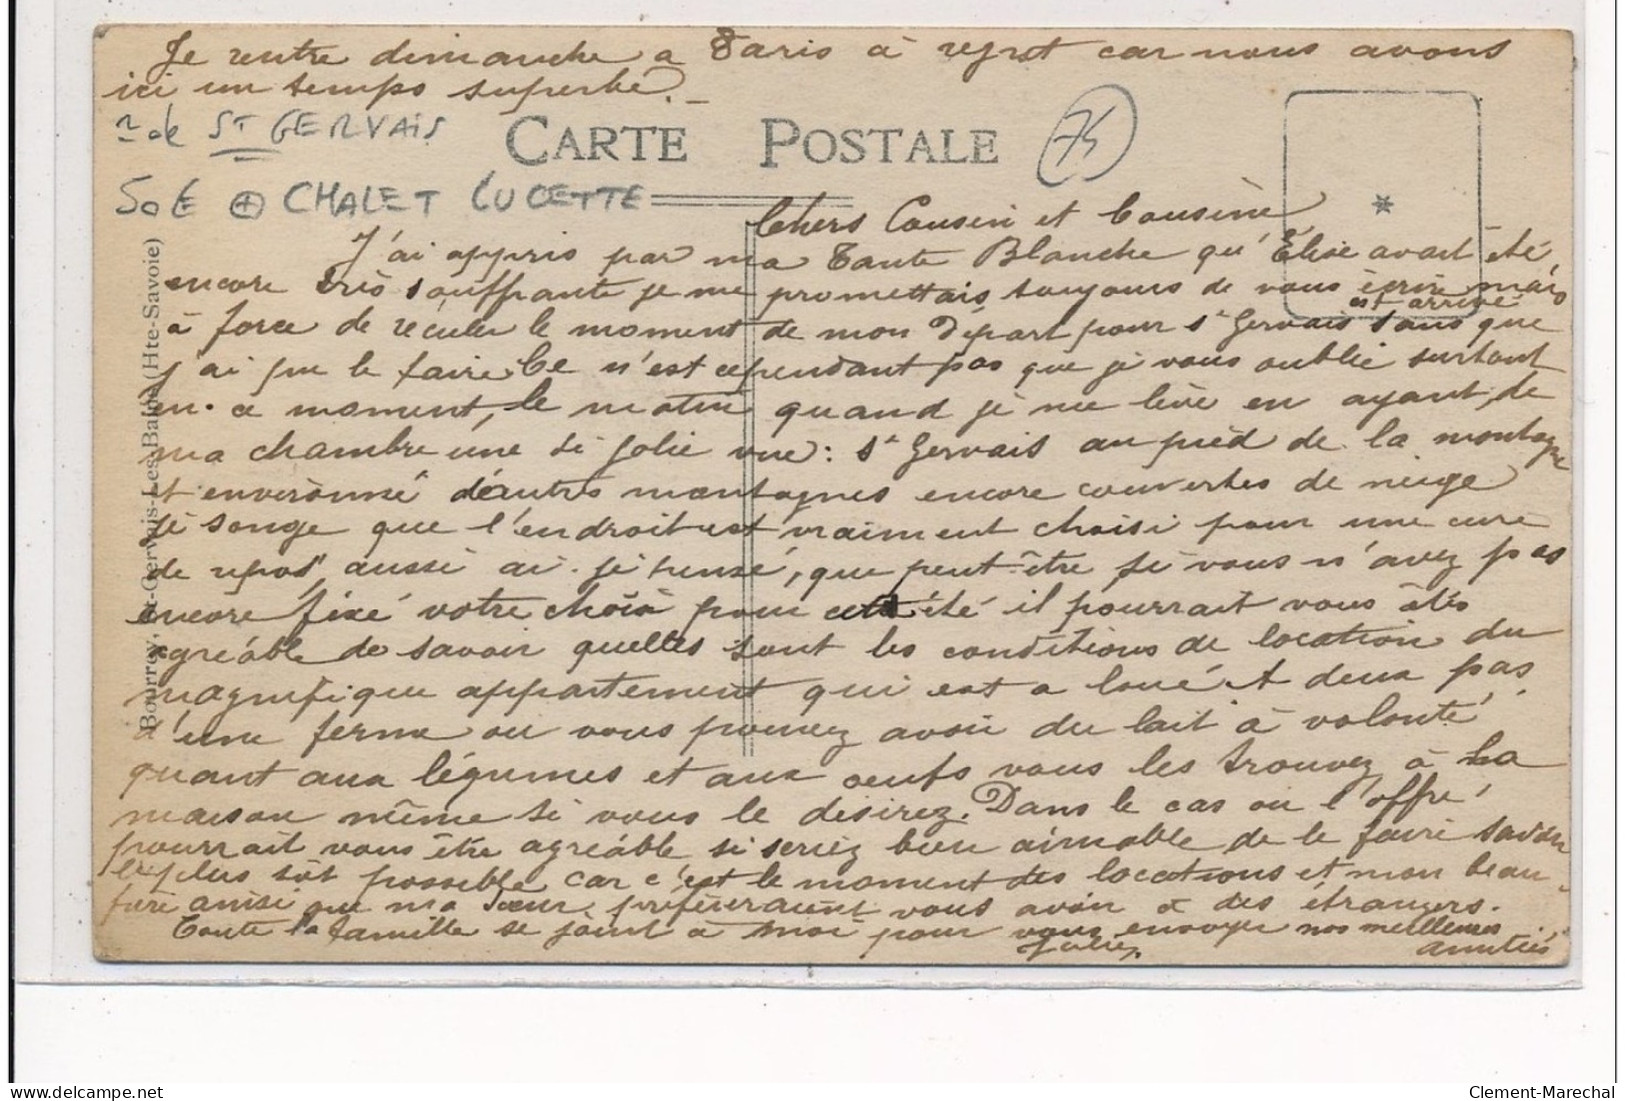 Je rentre dimanche a Paris à regret car nous avons
ici un temps superbe. _
de ST GERVAIS
CARTE POSTALE
75
50 € CHALET LUCETTE
Chers Cousin et Cousine
J'ai appris par ma Tante Blanche qu'Élise avait été
encore très souffrante je me promettais toujours de vous écrire mais
est arrivé
à force de reculer le moment de mon Départ pour St Gervais sans que
j'ai pu le faire. Ce n'est cependant pas que je vous oublie surtout
en ce moment, le matin quand je me lève en ayant de
ma chambre une si jolie vue : St Gervais au pied de la montagne
et environné d'autres montagnes encore couvertes de neige
je songe que l'endroit est vraiment choisi pour une cure
de repos aussi ai-je pensé, que peut-être si vous n'avez pas
encore fixé votre choix pour cet été il pourrait vous être
agréable de savoir quelles sont les conditions de location du
magnifique appartement qui est a loué. A deux pas
d'une ferme ou vous pouvez avoir du lait à volonté
quant aux légumes et aux oeufs vous les trouvez à la
maison même si vous le desirez. Dans le cas ou l'offre
pourrait vous être agréable si seriez bien aimable de le faire savoir
le plus tôt possible car c'est le moment des locations et mon beau-
frère ainsi que ma soeur préfèreraient vous avoir à des étrangers.
Toute la famille se joint à moi pour vous envoyer nos meilleures
amitiés
Bourrey, St-Gervais-Les-Bains (Hte-Savoie)
Clement-Marechal